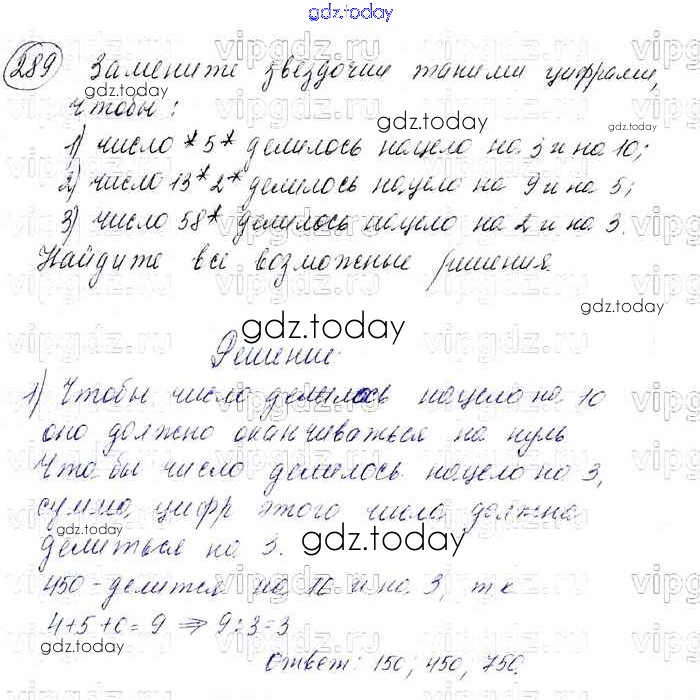 gdz.today
289 Замените звездочки такими цифрами,
чтобы:
1) число *5* делилось нацело на 3 и на 10;
2) число 13*2* делилось нацело на 9 и на 5;
3) число 58* делилось нацело на 2 и на 3.
Найдите все возможные решения.
Решение:
1) Чтобы число делилось нацело на 10
оно должно оканчиваться на нуль
Чтобы число делилось нацело на 3,
сумма цифр этого числа должна
делиться на 3.
450 - делится на 10 и на 3, т к
4+5+0=9 ⇒ 9:3=3
Ответ: 150; 450; 750.
gdz.today
gdz.today
gdz.today
gdz.today
gdz.today
gdz.today
vipgdz.ru